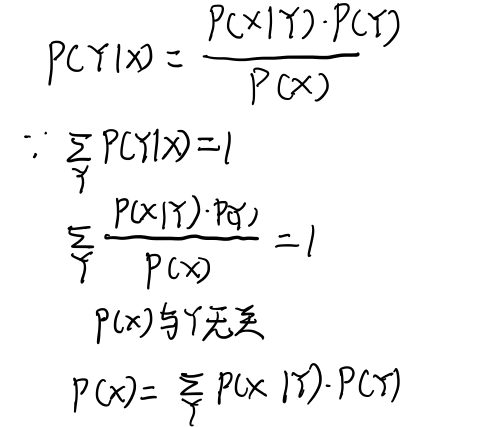 P(Y|X) = P(X|Y)·P(Y) / P(X)
∵ ∑_Y P(Y|X) = 1
∑_Y P(X|Y)·P(Y) / P(X) = 1
P(X)与Y无关
P(X) = ∑_Y P(X|Y)·P(Y)